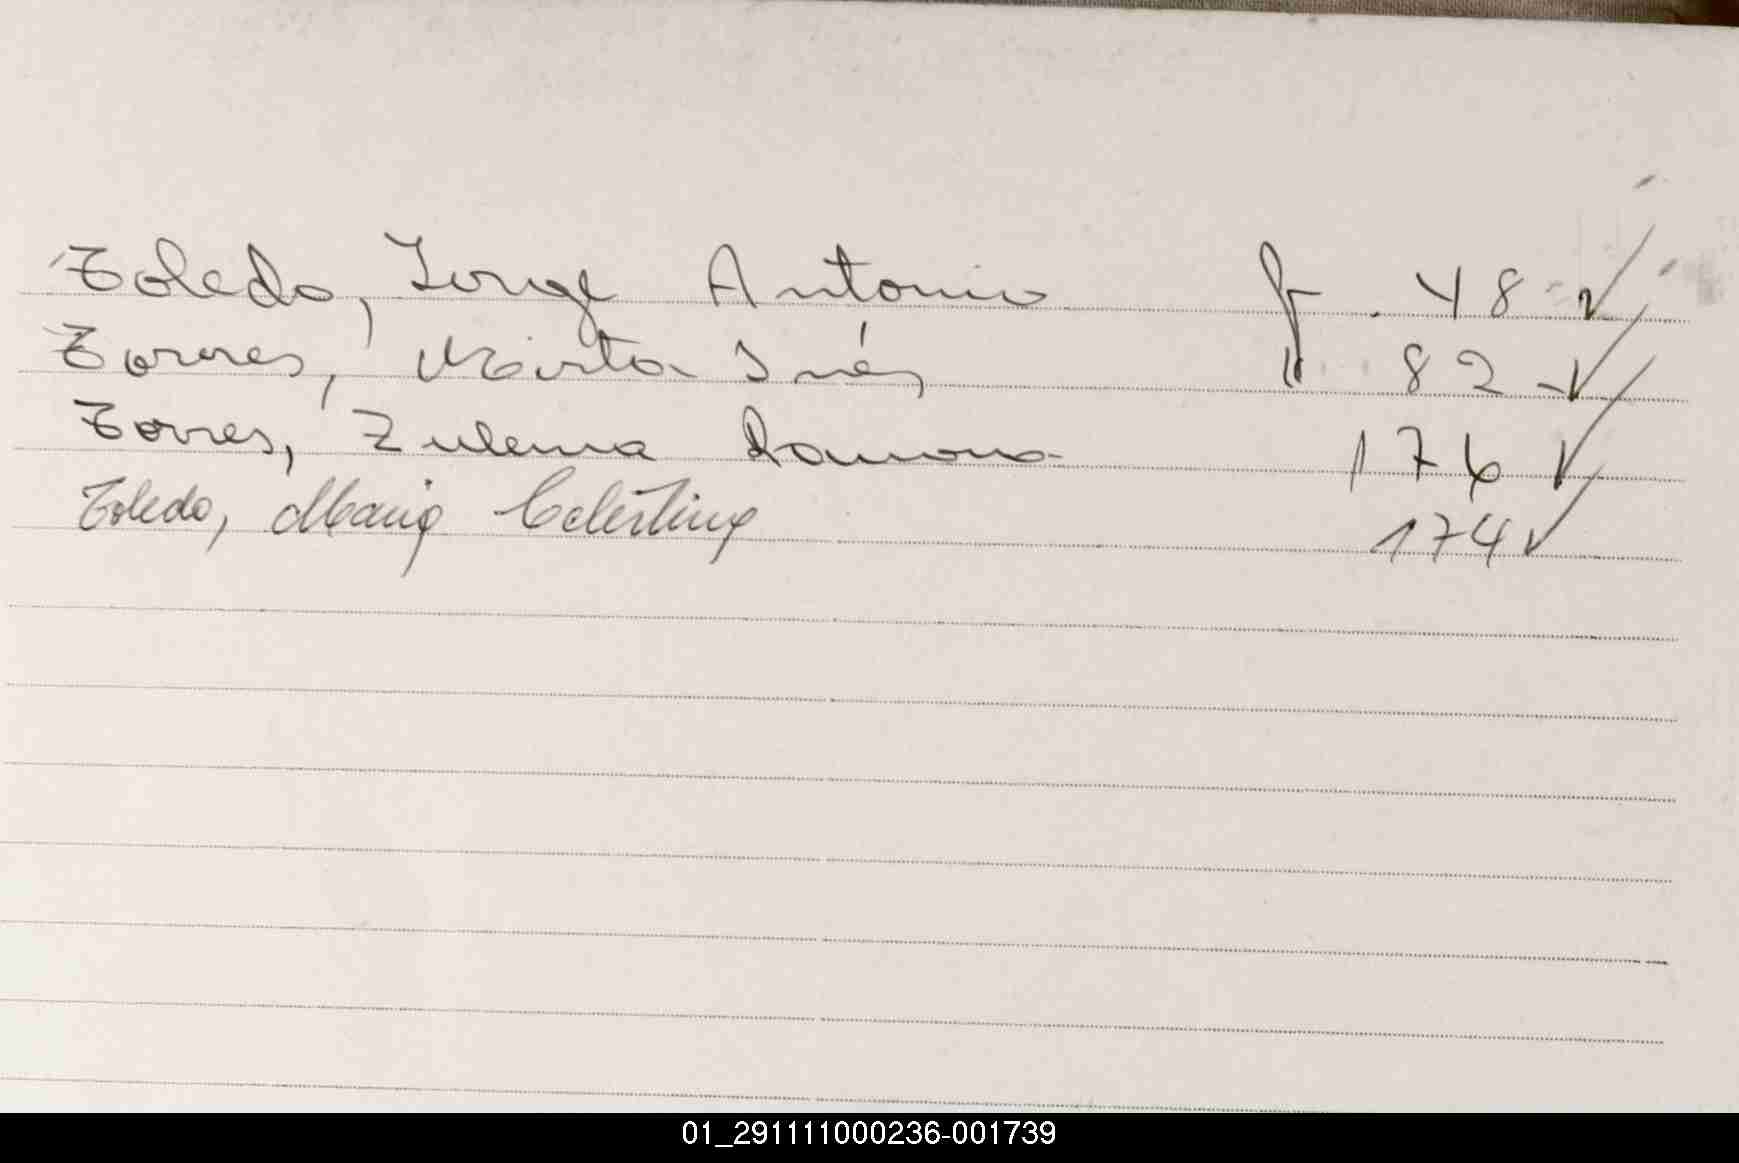 Toledo, Jorge Antonio f. 48 ✓
Torres, Mirta Inés " 82 ✓
Torres, Zulema Ramona 176 ✓
Toledo, Maria Celestina 174 ✓
01_291111000236-001739